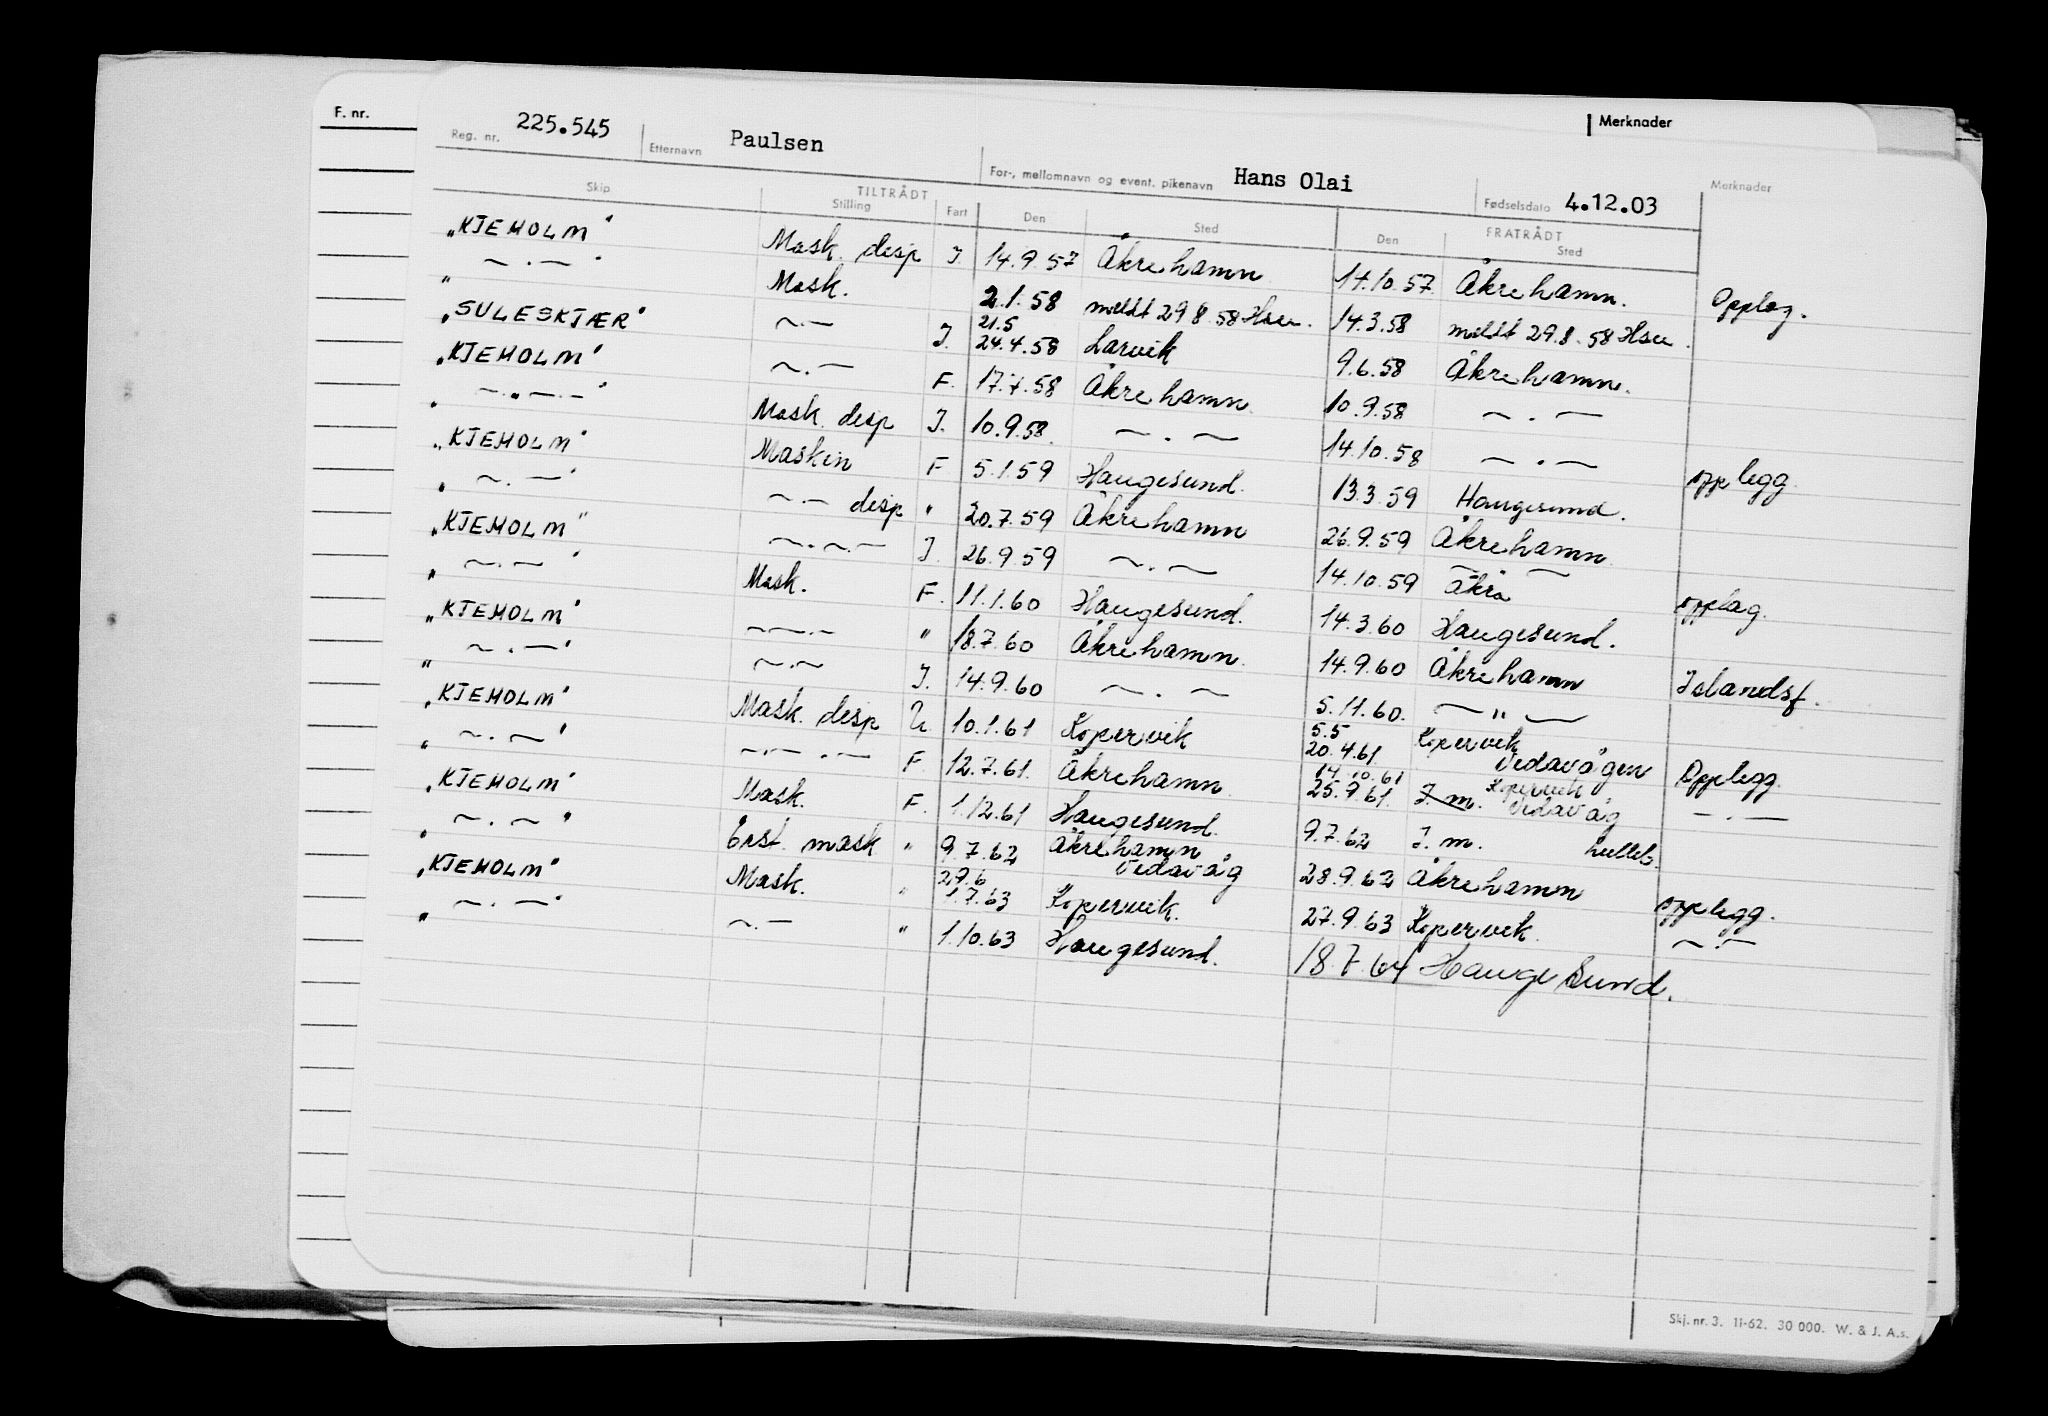 F. nr.
Merknader
Reg. nr. 225.545 Etternavn Paulsen For-, mellomnavn og event. pikenavn Hans Olai Fødselsdato 4.12.03 Merknader
Skip TILTRÅDT Stilling Fart Den Sted Den FRATRÅDT Sted
"KJEHOLM" Mask. disp J. 14.9.57 Åkrehamn 14.10.57 Åkrehamn. Opplag.
" ~.~ " Mask. 2.1.58 meldt 29 8.58 Hsu. 14.3.58 meldt 29.8.58 Hsu.
"SULESKJÆR" ~.~ J. 21.5 24.4.58 Larvik 9.6.58 Åkrehamn.
"KJEHOLM" ~.~ F. 17.7.58 Åkrehamn 10.9.58 ~.~
" ~.~ " Mask. disp J. 10.9.58. ~.~ 14.10.58 ~.~ opplegg.
"KJEHOLM" Maskin F 5.1.59 Haugesund. 13.3.59 Haugesund.
" ~.~ " ~.~ disp " 20.7.59 Åkrehamn 26.9.59 Åkrehamn
"KJEHOLM" ~.~.~ J. 26.9.59 ~.~ 14.10.59 Åkra opplag.
" ~.~ " Mask. F. 11.1.60 Haugesund. 14.3.60 Haugesund.
"KJEHOLM" ~.~ " 18.7.60 Åkrehamn. 14.9.60 Åkrehamn Islandsf.
" ~.~ " ~.~ J. 14.9.60 ~.~ 5.11.60. ~ " ~
"KJEHOLM" Mask. disp 10.1.61 Kopervik 5.5 20.4.61 Kopervik Vedavågen Opplegg.
" ~.~ " ~.~.~ F. 12.7.61. Åkrehamn 14.10.61 25.9.61. Kopervik J. m. Vedavåg ~.~
"KJEHOLM" Mask. F. 1.12.61 Haugesund. 9.7.62 J. m.
" ~.~ " Erst. mask " 9.7.62 Åkrehamn Vedavåg 28.9.62 Åkrehamn opplegg.
"KJEHOLM" Mask. " 29.6 1.7.63 Kopervik. 27.9.63 Kopervik. ~.~
" ~.~ " ~.~ " 1.10.63 Haugesund. 18.7.64 Haugesund.
Skj. nr. 3. 11-62. 30 000. W. & J. A.s.